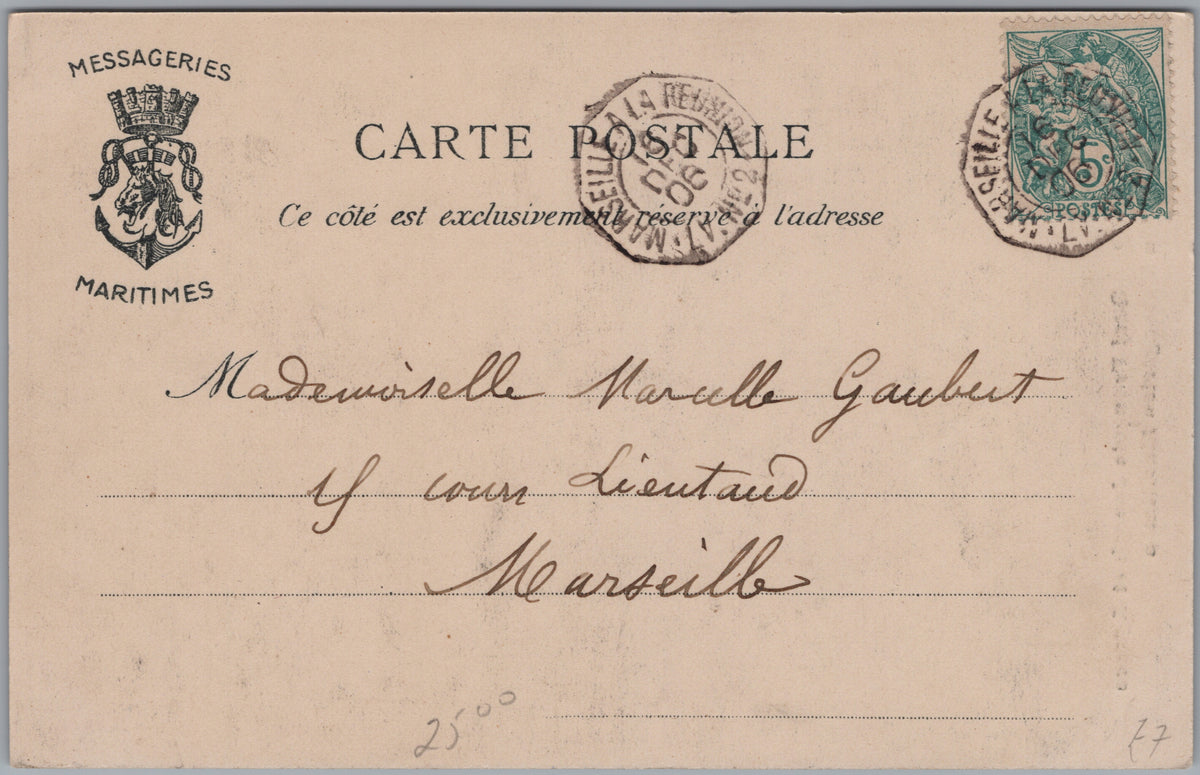 MESSAGERIES
MARITIMES
CARTE POSTALE
Ce côté est exclusivement réservé à l'adresse
MARSEILLE A LA REUNION
L.V. Nº 2
DEC
06
MARSEILLE A LA REUNION
06
5c
POSTES
Mademoiselle Marcelle Gaubert
cours Lieutaud
Marseille
25 00